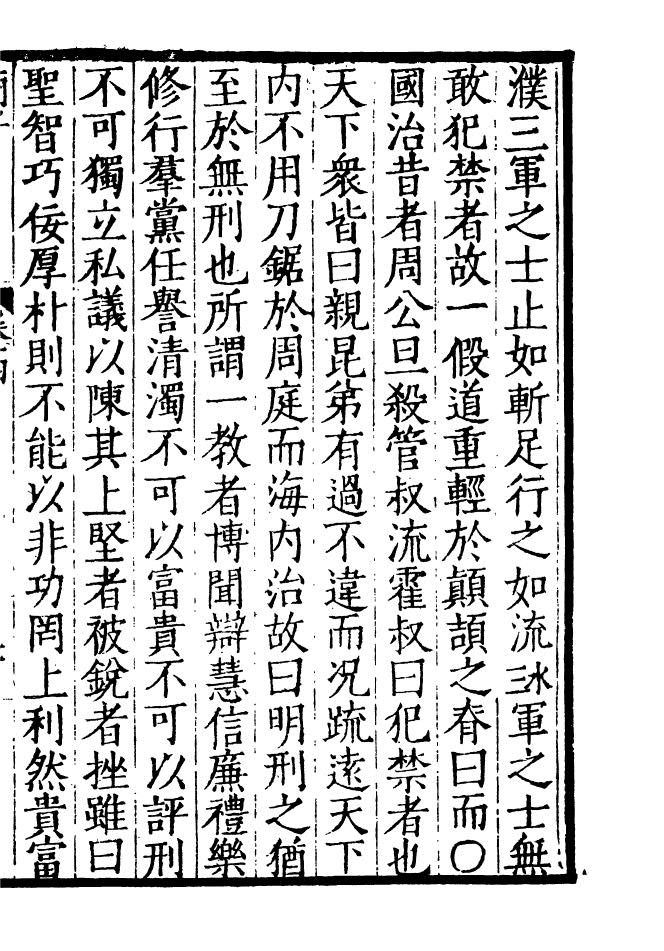 濮三軍之士止如斬足行之如流水三軍之士無
敢犯禁者故一假道重輕於顛頡之脊曰而〇
國治昔者周公旦殺管叔流霍叔曰犯禁者也
天下衆皆曰親昆弟有過不違而况疏逺天下
内不用刀鋸於周庭而海内治故曰明刑之猶
至於無刑也所謂一教者博聞辯慧信廉禮樂
修行羣黨任譽清濁不可以富貴不可以評刑
不可獨立私議以陳其上堅者被銳者挫雖曰
聖智巧佞厚朴則不能以非功罔上利然貴富